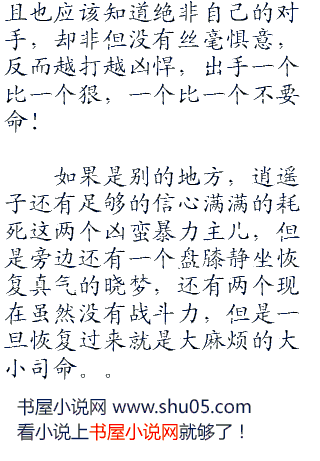 且也应该知道绝非自己的对
手，却非但没有丝毫惧意，
反而越打越凶悍，出手一个
比一个狠，一个比一个不要
命！
如果是别的地方，逍遥
子还有足够的信心满满的耗
死这两个凶蛮暴力主儿，但
是旁边还有一个盘膝静坐恢
复真气的晓梦，还有两个现
在虽然没有战斗力，但是一
旦恢复过来就是大麻烦的大
小司命。。
书屋小说网 www.shu05.com
看小说上书屋小说网就够了！